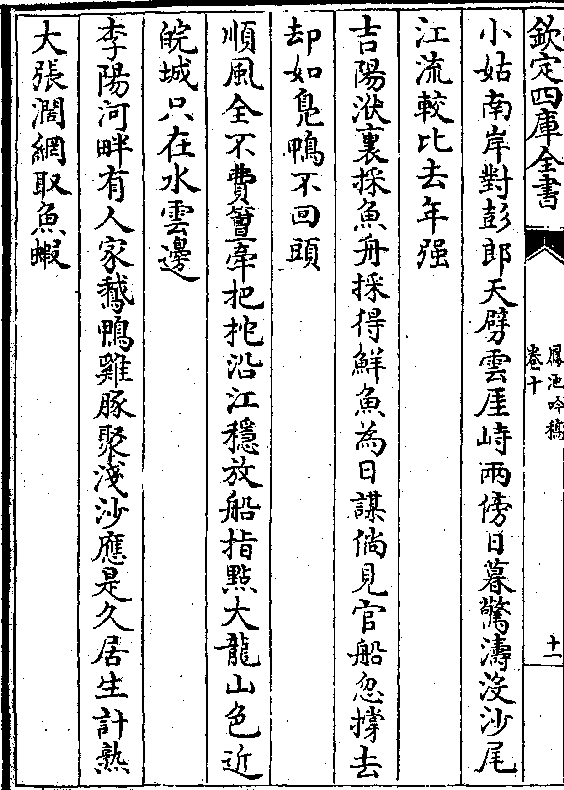 欽定四庫全書
鳳池吟稿
卷十
十一
小姑南岸對彭郎天劈雲厓峙兩傍日暮驚濤沒沙尾
江流較比去年强
吉陽洑裏採魚舟採得鮮魚為日謀倘見官船忽撐去
却如鳬鴨不回頭
順風全不費篙牽把柁沿江穩放船指點大龍山色近
皖城只在水雲邊
李陽河畔有人家鵞鴨雞豚聚淺沙應是久居生計熟
大張濶網取魚蝦